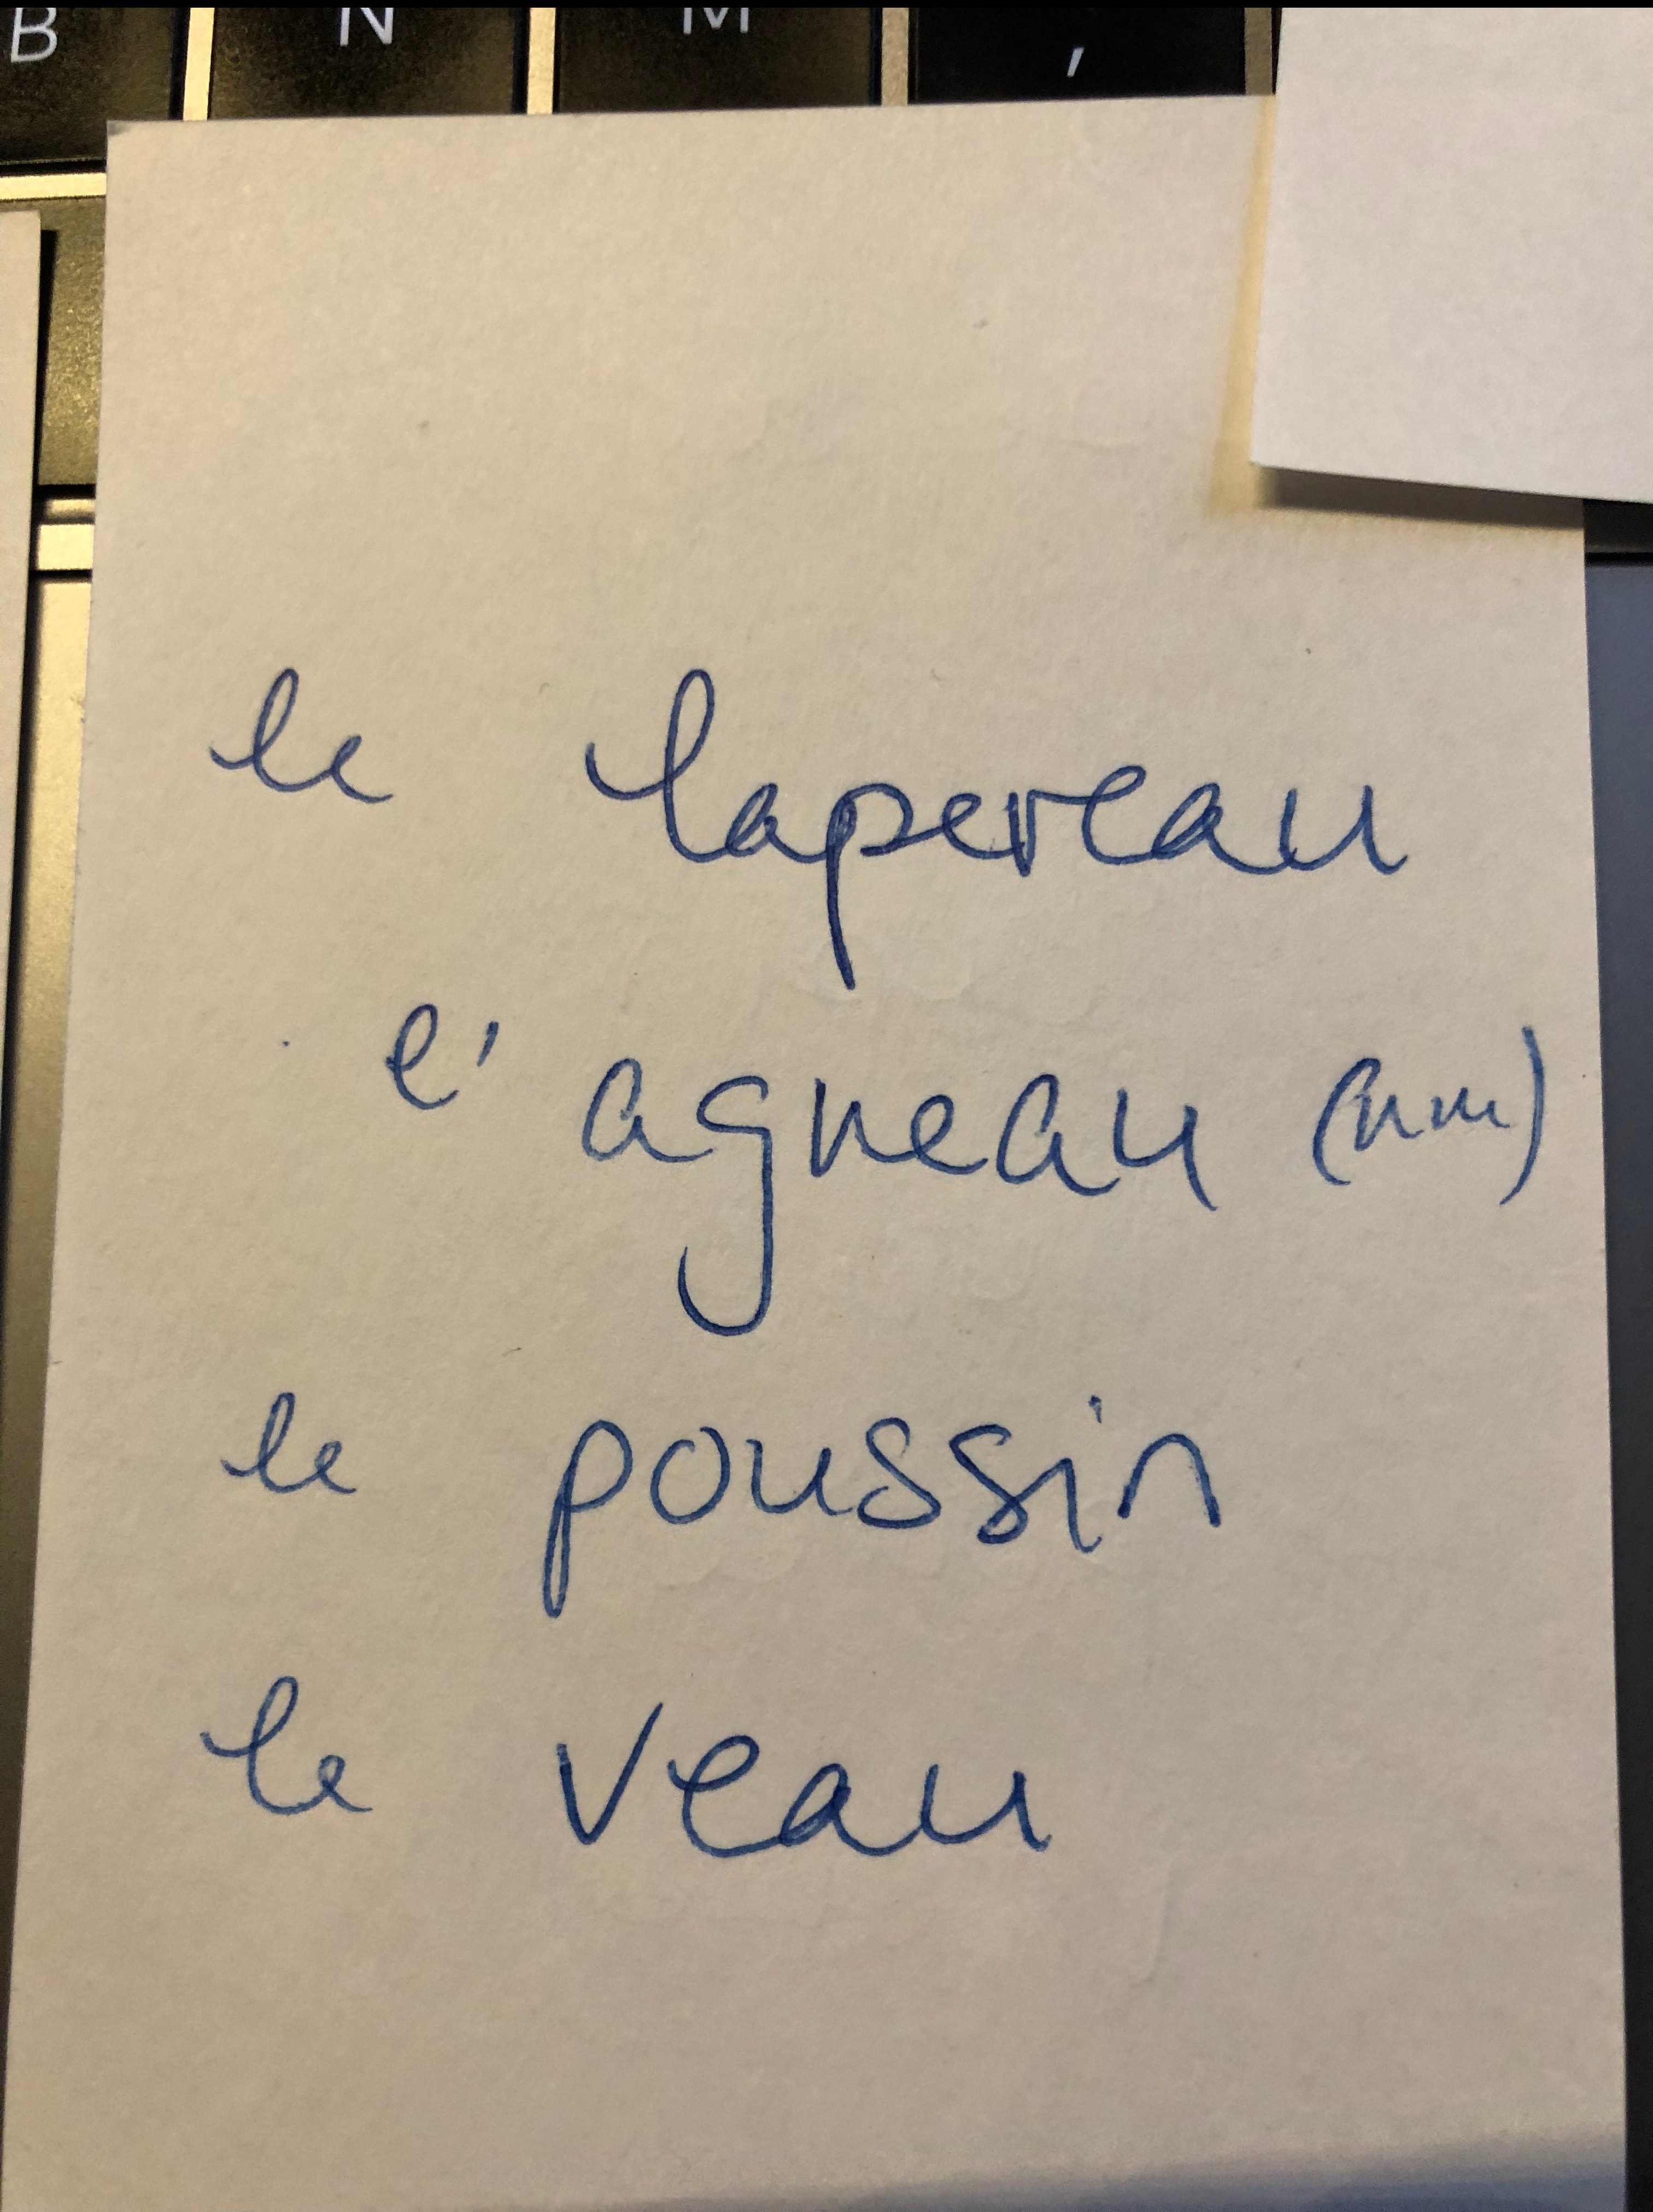 B N M ,
le lapereau
l' agneau (nm)
le poussin
le veau